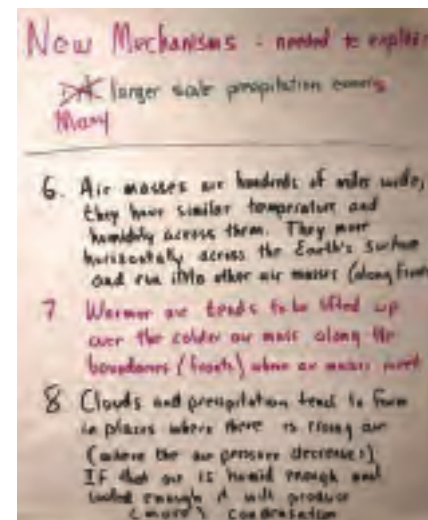 New Mechanisms - needed to explain
larger scale precipitation events
Many
6. Air masses are hundreds of miles wide,
they have similar temperature and
humidity across them. They move
horizontally across the Earth's surface
and run into other air masses (along front
7 Warmer air tends to be lifted up
over the colder air mass along the
boundaries (fronts) where air masses meet
8 Clouds and precipitation tend to form
in places where there is rising air
(where the air pressure decreases)
IF that air is humid enough and
cooled enough it will produce
(more) condensation